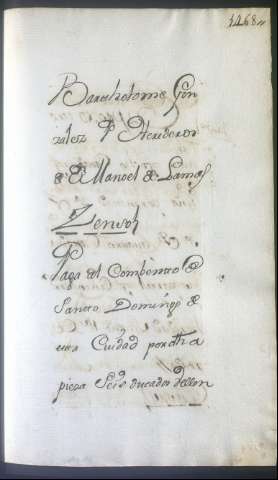 1468
Bartholome Gon
zalez P Herederos
de El Manoel de Lamas
Zensos
Paga al Combento de
Sancto Domingo de
esta Ciudad por otra
pieza Seis ducados Vellon